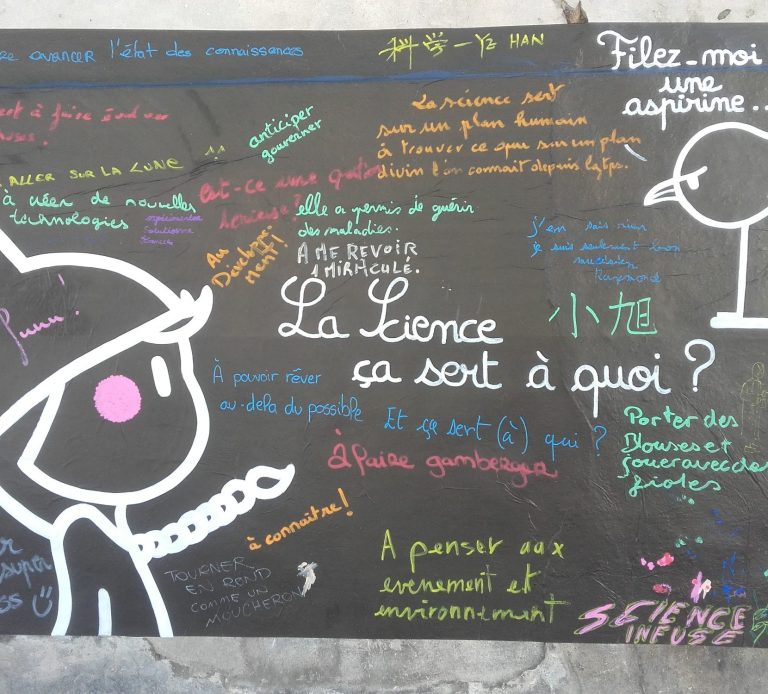 avancer l'état des connaissances
科学 - YZ HAN
Filez-moi
une
aspirine..
à faire évoluer
anticiper
gouverner
La science sert
sur un plan humain
à trouver ce que sur un plan
divin l'on connait depuis lgtps.
ALLER SUR LA LUNE
à créer de nouvelles
technologies
est-ce une question
sérieuse?
elle a permis de guérir
des maladies.
A ME REVOIR
1 MIRACULÉ.
Au
j'en sais rien
je suis seulement bon
musicien
Raymond
小旭
La Science
ça sert à quoi ?
À pouvoir rêver
au-dela du possible
Et ça sert (à) qui ?
À faire gamberger
Porter des
Blouses et
jouer avec des
fioles
à connaître!
TOURNER
EN ROND
COMME UN
MOUCHERON
A penser aux
evenement et
environnement
super
SCIENCE
INFUSE